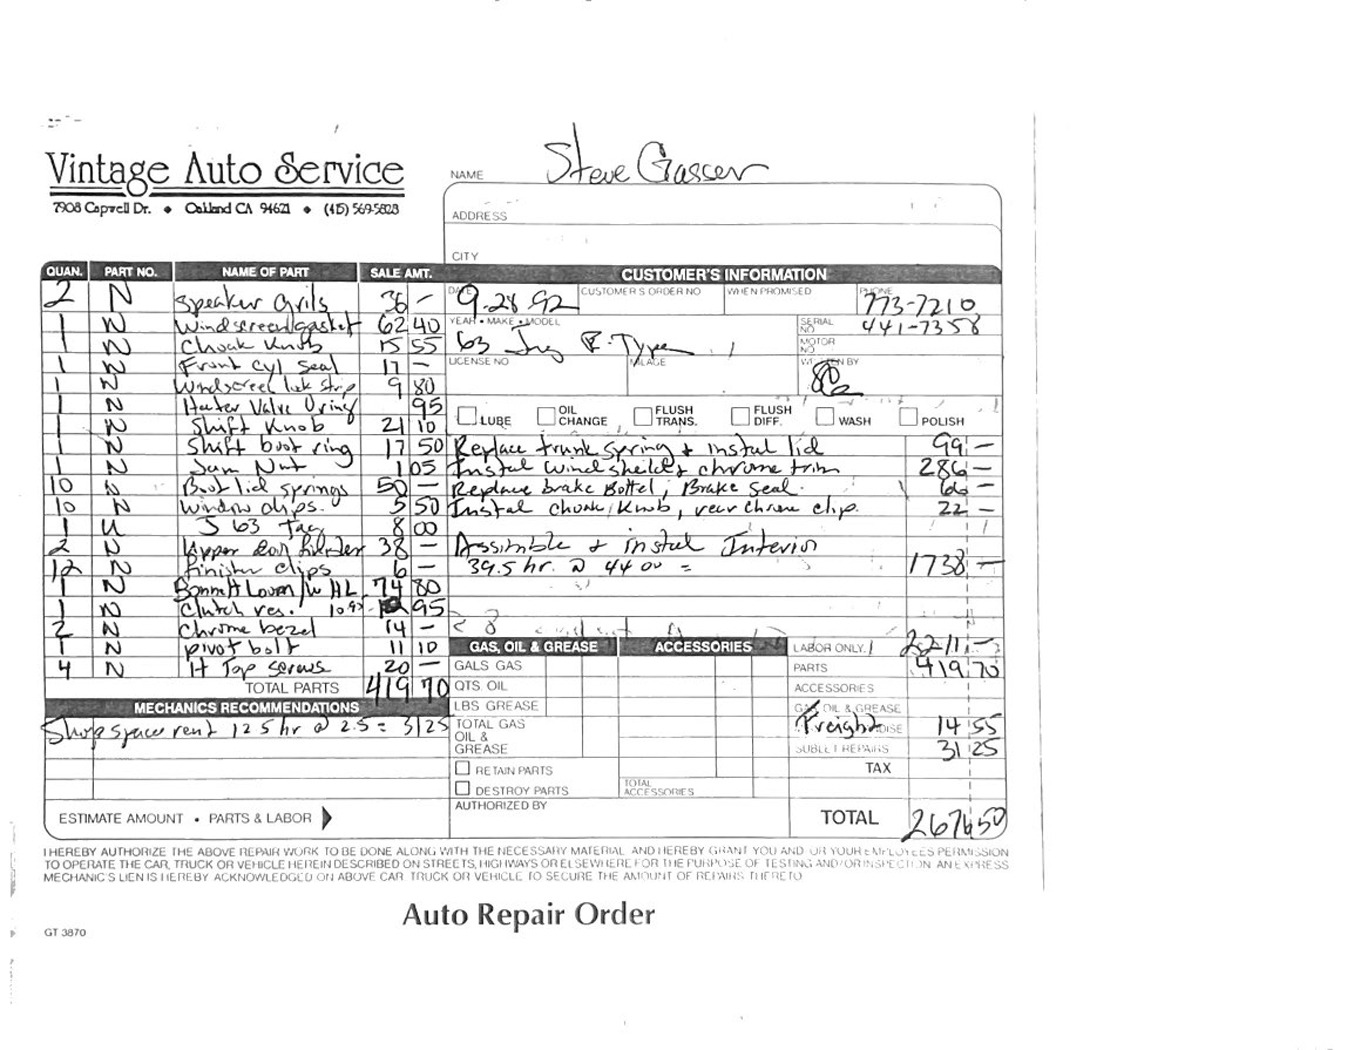 Vintage Auto Service
7908 Capwell Dr. ♦ Oakland CA 94621 ♦ (415) 569-5828
NAME Steve Gasser
ADDRESS
CITY
QUAN. PART NO. NAME OF PART SALE AMT. CUSTOMER'S INFORMATION
DATE 9.28 92 CUSTOMER'S ORDER NO WHEN PROMISED PHONE 773-7210
441-7358
YEAR • MAKE • MODEL 63 Jag E-Type SERIAL NO
MOTOR NO
LICENSE NO MILAGE WRITTEN BY
2 N Speaker Grils 36 —
1 N Windscreen gasket 62 40
1 N Choak Knob 15 55
1 N Front Cyl Seal 17 —
1 N Windscreen lok strip 9 80
1 N Heater Valve Oring 95
1 N Shift Knob 21 10
1 N Shift boot ring 17 50
1 N Jam Nut 1 05
10 N Boot lid springs 50 —
10 N Window clips. 5 50
1 U J 63 Tag 8 00
2 N Upper 38 —
12 N Finisher clips 6 —
1 N Bonnett Louvr/w HL 74 80
1 N Clutch res. 10.95 95
2 N Chrome bezel 14 —
1 N pivot bolt 11 10
4 N Ht Top screws 20 —
TOTAL PARTS 419 70
LUBE OIL CHANGE FLUSH TRANS. FLUSH DIFF. WASH POLISH
Replace trunk spring & instal lid 99 —
Instal windsheild & chrome trim 286 —
Replace brake Bottel, Brake Seal. 66 —
Instal choak/Knob, rear chrome clip. 22 —
Assimble & instal Interior
39.5 hr. @ 44 00 = 1738 —
GAS, OIL & GREASE ACCESSORIES LABOR ONLY 2211 —
GALS GAS PARTS 419 70
QTS. OIL ACCESSORIES
LBS GREASE GAS, OIL & GREASE
TOTAL GAS OIL & GREASE Freight 14 55
SUBLET REPAIRS 31 25
RETAIN PARTS TAX
DESTROY PARTS TOTAL ACCESSORIES
AUTHORIZED BY TOTAL 2676 50
MECHANICS RECOMMENDATIONS
Shop space rent 12 5 hr @ 2.5 = 31 25
ESTIMATE AMOUNT • PARTS & LABOR
I HEREBY AUTHORIZE THE ABOVE REPAIR WORK TO BE DONE ALONG WITH THE NECESSARY MATERIAL AND HEREBY GRANT YOU AND OR YOUR EMPLOYEES PERMISSION
TO OPERATE THE CAR, TRUCK OR VEHICLE HEREIN DESCRIBED ON STREETS, HIGHWAYS OR ELSEWHERE FOR THE PURPOSE OF TESTING AND/OR INSPECTION AN EXPRESS
MECHANIC'S LIEN IS HEREBY ACKNOWLEDGED ON ABOVE CAR TRUCK OR VEHICLE TO SECURE THE AMOUNT OF REPAIRS THERETO
Auto Repair Order
GT 3870